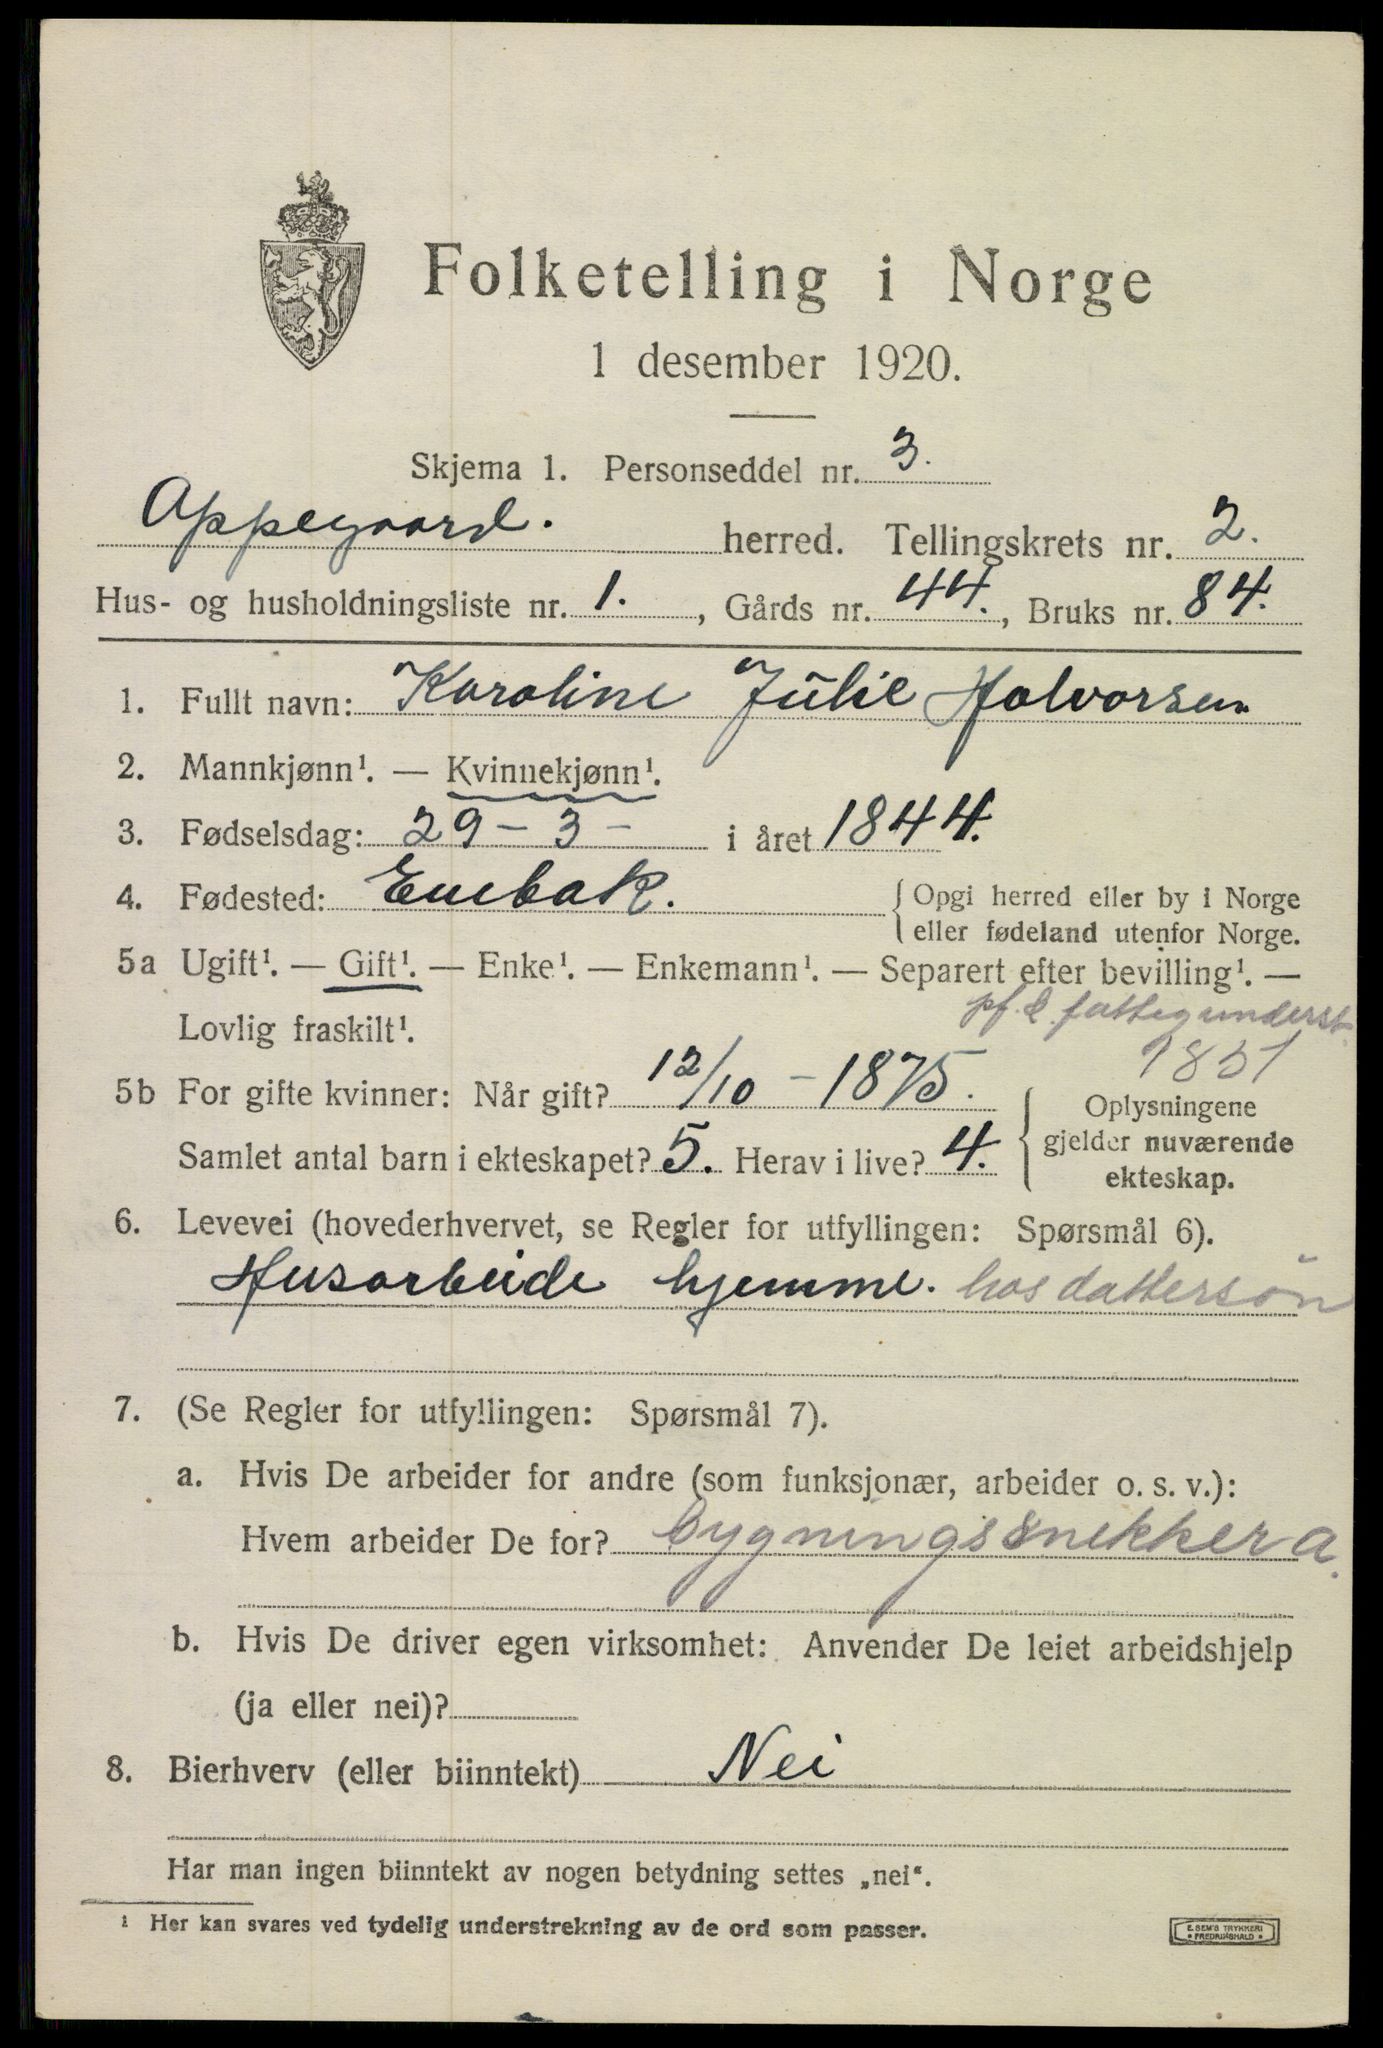 Folketelling i Norge
1 desember 1920.
Skjema 1. Personseddel nr. 3.
Oppegaard. herred. Tellingskrets nr. 2.
Hus- og husholdningsliste nr. 1., Gårds nr. 44., Bruks nr. 84.
1. Fullt navn: Karoline Julie Halvorsen
2. Mannkjønn¹. — Kvinnekjønn¹.
3. Fødselsdag: 29 - 3 - i året 1844.
4. Fødested: Enebak. Opgi herred eller by i Norge
eller fødeland utenfor Norge.
5a Ugift¹. — Gift¹. — Enke¹. — Enkemann¹. — Separert efter bevilling¹. —
Lovlig fraskilt¹. fattigunderst.
5b For gifte kvinner: Når gift? 12/10 - 1875.
Samlet antal barn i ekteskapet? 5. Herav i live? 4.
Oplysningene
gjelder nuværende
ekteskap.
6. Levevei (hovederhvervet, se Regler for utfyllingen: Spørsmål 6).
Husarbeide hjemme. hos dattersøn
7. (Se Regler for utfyllingen: Spørsmål 7).
a. Hvis De arbeider for andre (som funksjonær, arbeider o. s. v.):
Hvem arbeider De for? bygningssnekker a.
b. Hvis De driver egen virksomhet: Anvender De leiet arbeidshjelp
(ja eller nei)?
8. Bierhverv (eller biinntekt) Nei
Har man ingen biinntekt av nogen betydning settes „nei“.
¹ Her kan svares ved tydelig understrekning av de ord som passer.
E. SEM'S TRYKKERI
• FREDRIKSHALD •